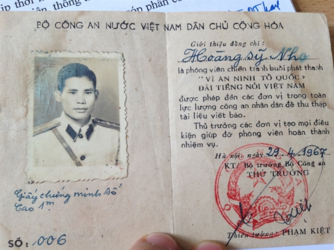 BỘ CÔNG AN NƯỚC VIỆT NAM DÂN CHỦ CỘNG HÒA
Giới thiệu đồng chí:
Hoàng Sỹ Nho
là phóng viên chiến tranh buổi phát thanh
"VÌ AN NINH TỔ QUỐC"
ĐÀI TIẾNG NÓI VIỆT NAM
được phép đến các đơn vị trong toàn
lực lượng công an nhân dân để thu thập
tài liệu viết báo.
Thủ trưởng các đơn vị tạo mọi điều
kiện giúp đỡ phóng viên hoàn thành
nhiệm vụ.
Hà nội, ngày 29.4.1967
KT/ Bộ trưởng Bộ Công an
THỨ TRƯỞNG
Thiếu tướng: PHẠM KIỆT
Giấy chứng minh số
Cao 1m
SỐ: 006